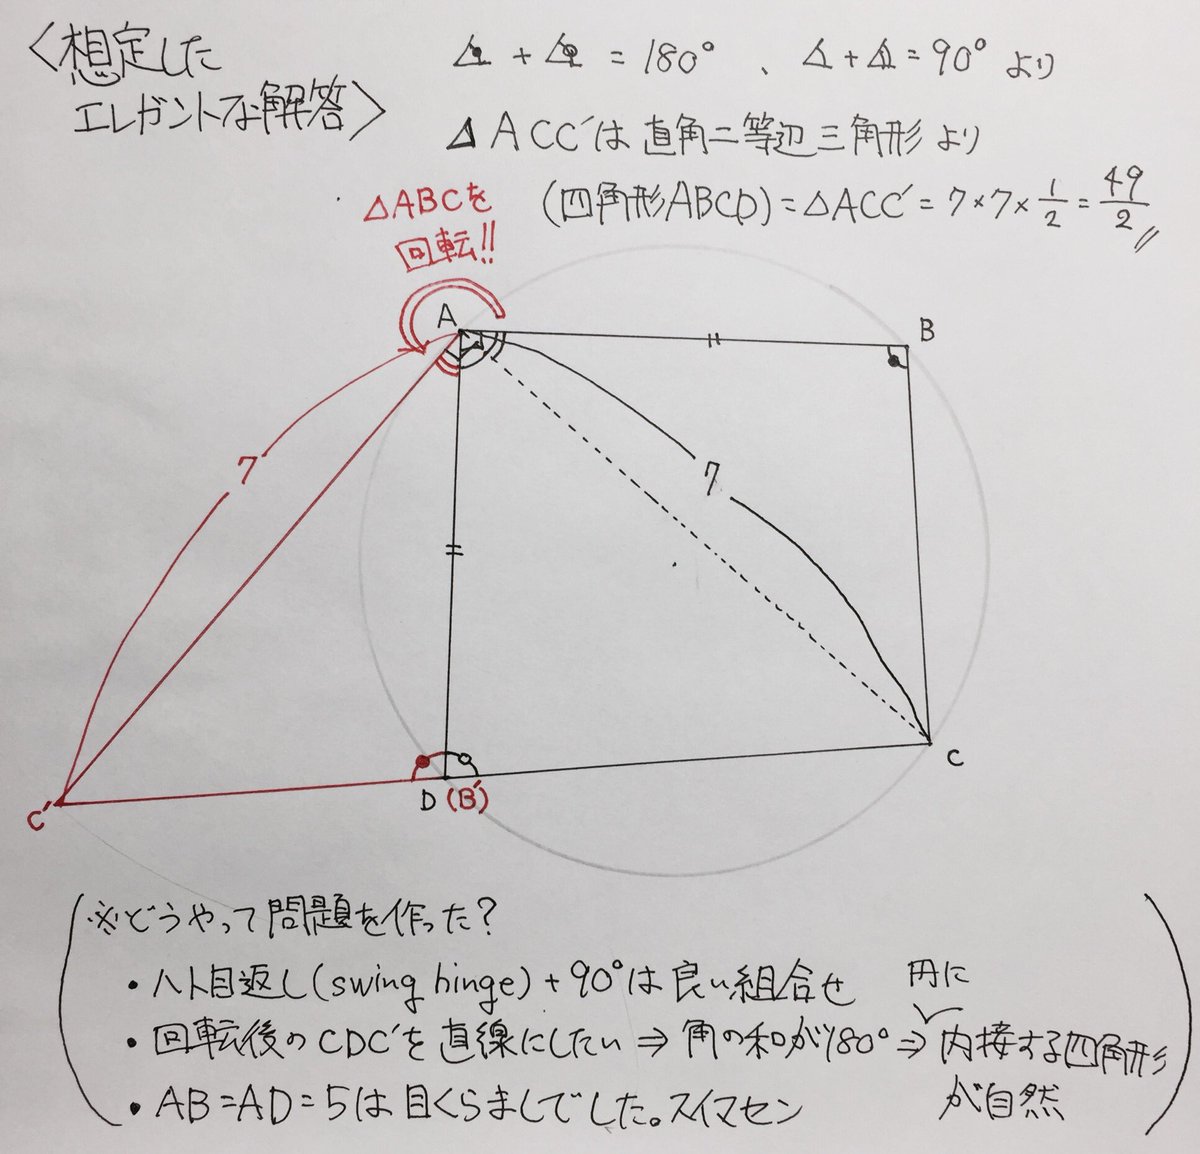 〈想定した
エレガントな解答〉
∠● + ∠○ = 180°、∠ + ∠ = 90° より
△ACC'は直角二等辺三角形より
(四角形ABCD) = △ACC' = 7×7×1/2 = 49/2 //
△ABCを
回転!!
A
B
7
7
C
C'
D (B')
※どうやって問題を作った?
・ハト目返し(swing hinge)+90°は良い組合せ
・回転後のCDC'を直線にしたい⇒角の和が180°⇒円に内接する四角形
が自然
・AB=AD=5は目くらましでした。スイマセン